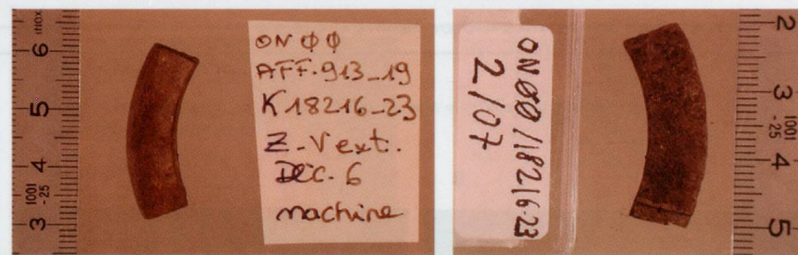 INOX
6
5
4
3
1001
-25
ON ΦΦ
AFF.913_19
K18216_23
Z-V ext.
DEC. 6
machine
ON ØØ/18216-23
2/07
2
3
4
5
1001
-25